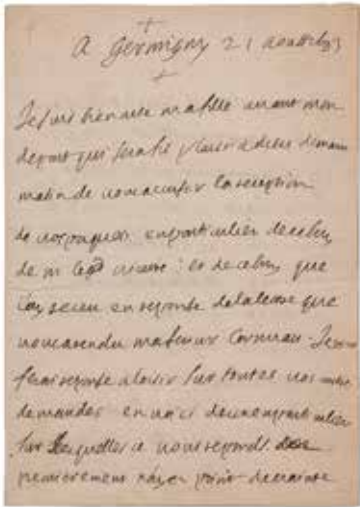 A Germigny 21 aoust 1693
Je suis bien aise ma fille avant mon
depart qui sera sil plaist a dieu demain
matin de vous accuser la reception
de vos paquets en particulier de celuy
de m le vicaire : et de celuy que
jay receu en reponse de la lettre que
vous a rendu ma sœur Cornuau. Je
ferai reponse a loisir sur toutes vos
demandes en voici deux en particulier
sur lesquelles je vous reponds.
premierement nayez point de crainte